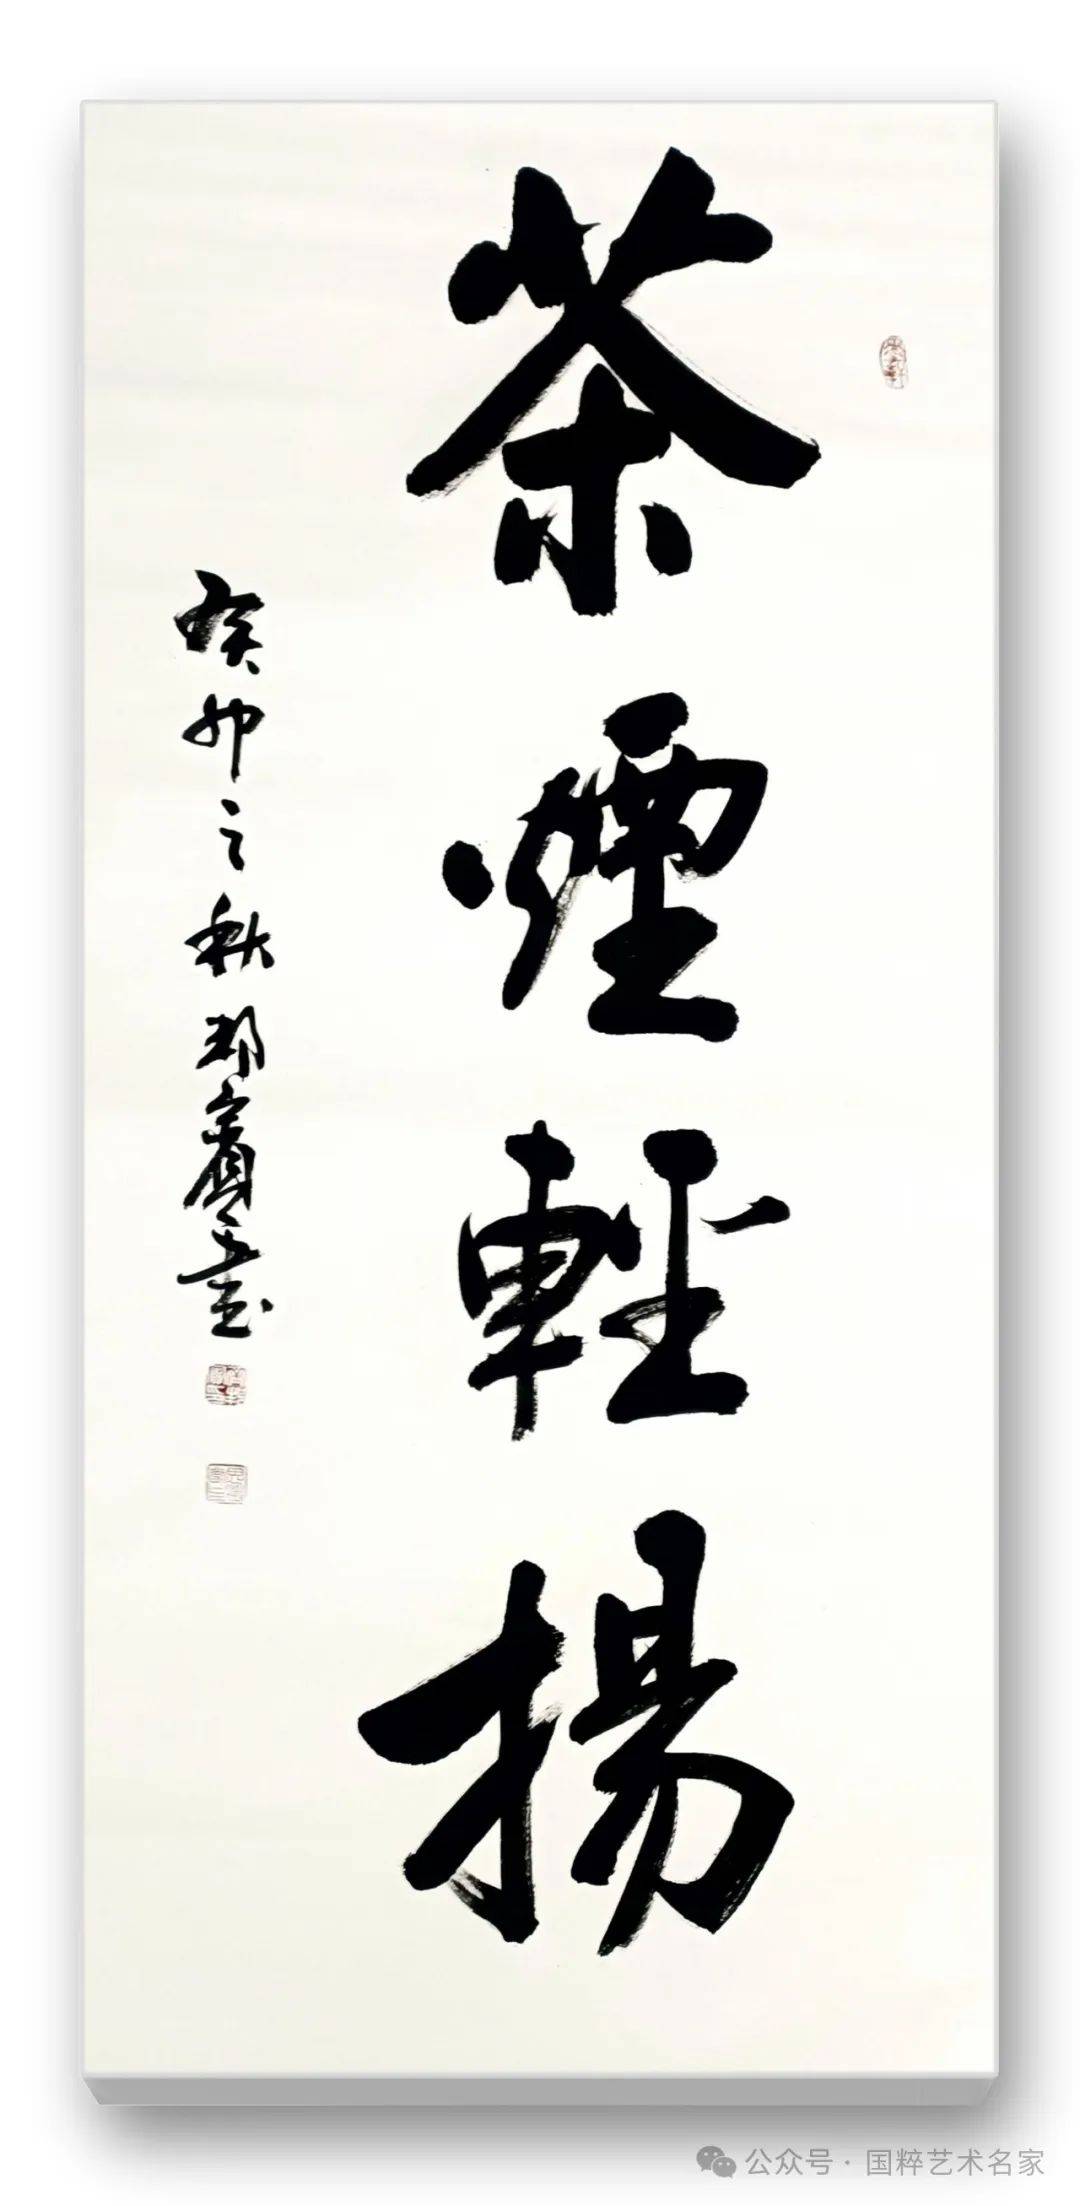 茶煙輕揚
癸卯之秋郑賓玉書
公众号 · 国粹艺术名家